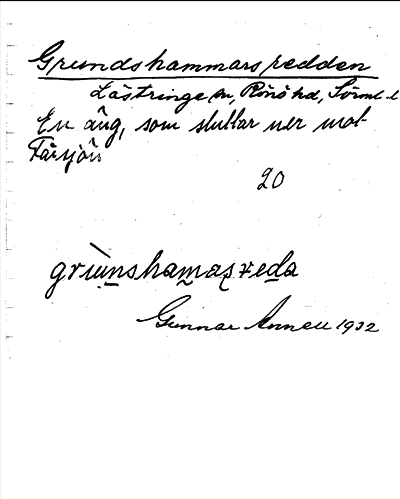 Grundshammarsredden
Lästringe sn, Rönö hd, Sörml. l
En äng, som sluttar ner mot
Fårsjön
20
grùnshamasreda
Gunnar Annell 1932